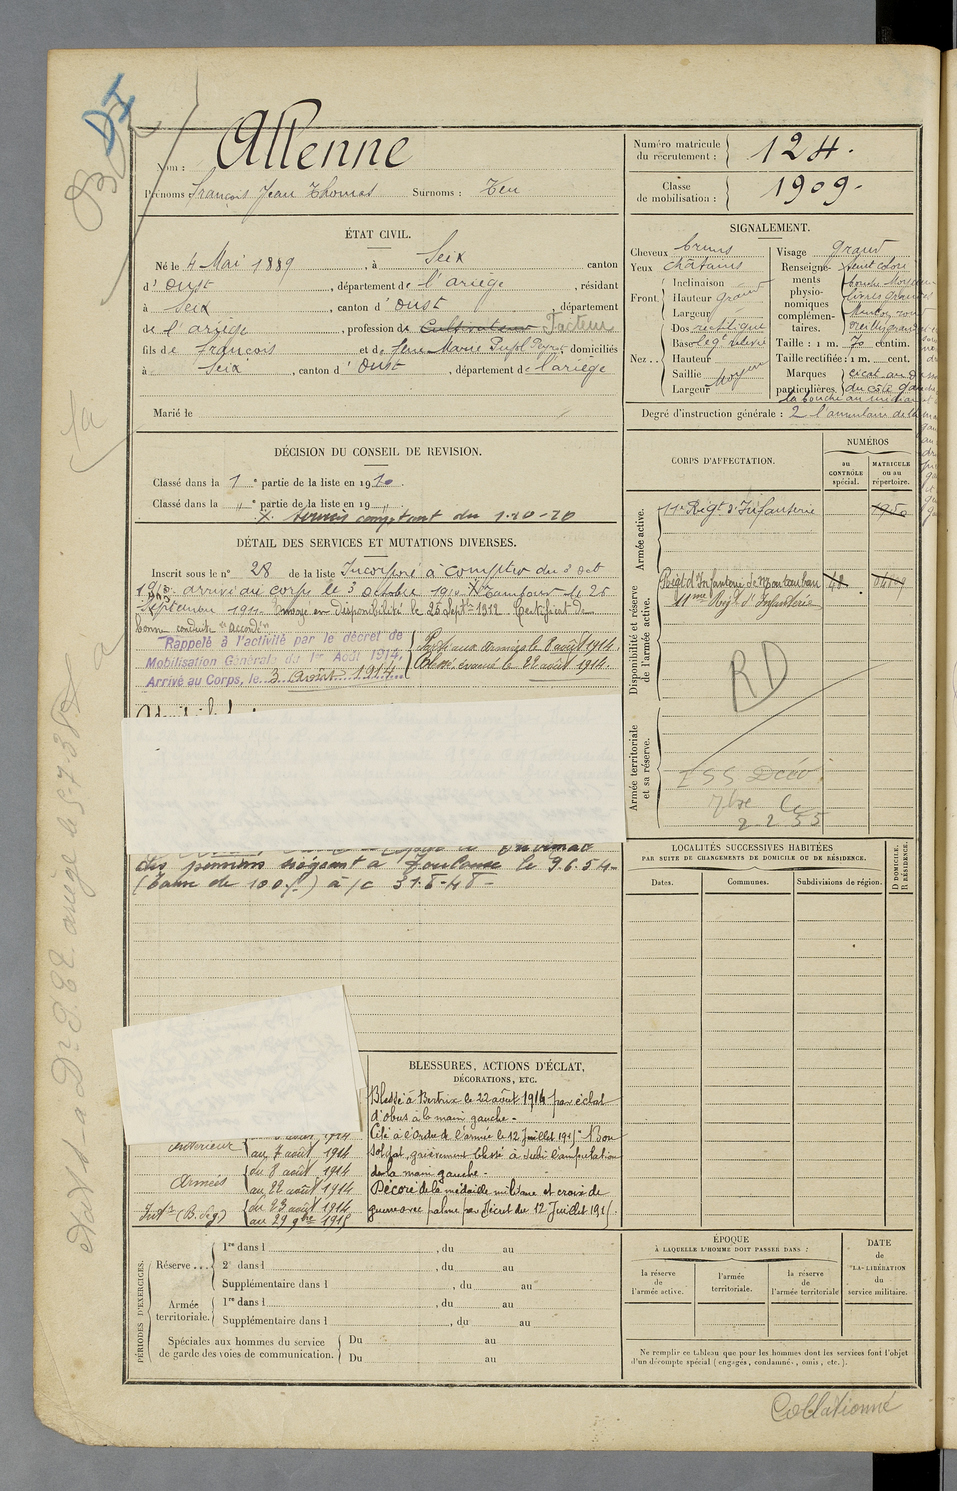 DI
Nom : Allenne
Prénoms : François Jean Thomas Surnoms : Teu
Numéro matricule du recrutement : 124.
Classe de mobilisation : 1909.
ÉTAT CIVIL.
Né le 4 Mai 1889, à Seix canton
d'Oust, département de l'ariège, résidant
à Seix, canton d'Oust, département
de l'ariège, profession de Cultivateur Facteur
fils de François et de feue Marie Pujol Peyrot, domiciliés
à Seix, canton d'Oust, département de l'ariège
Marié le
SIGNALEMENT.
Cheveux bruns
Yeux châtains
Front. Inclinaison
Hauteur grand
Largeur
Nez .. Dos rectiligne
Base legt relevé
Hauteur
Saillie Moyen
Largeur
Visage grand
Renseignements physionomiques complémentaires. teint coloré
bouche Moyenne
lèvres grandes
Menton rond
oreilles grandes
Taille : 1 m. 70 centim.
Taille rectifiée : 1 m. cent.
Marques particulières cicat. au
du côté
la bouche au
Degré d'instruction générale : 2 l'annulaire de la
DÉCISION DU CONSEIL DE REVISION.
Classé dans la 1e partie de la liste en 1910.
Classé dans la " e partie de la liste en 19 ".
comptant du 1-10-10
DÉTAIL DES SERVICES ET MUTATIONS DIVERSES.
Inscrit sous le n° 28 de la liste Incorporé à compter du 3 oct
1910. arrivé au corps le 3 octobre 1910. Tambour le 25
Septembre 1911. Envoyé en disponibilité le 25 Septre 1912. Certificat de
bonne conduite "accordé"
Rappelé à l'activité par le décret de
Mobilisation Générale du 1er Août 1914.
Arrivé au Corps, le 3 Août 1914
Parti aux armées le 8 août 1914.
Blessé, évacué le 22 août 1914.
des pensions siégeant à Toulouse le 9.6.54-
(Taux de 100%) à /c 31-8-48-
CORPS D'AFFECTATION.
NUMÉROS
au CONTRÔLE spécial.
MATRICULE ou au répertoire.
Armée active.
11e Régt d'Infanterie 1950
Disponibilité et réserve de l'armée active.
Régt d'Infanterie de Montauban 48
11me Régt d'Infanterie
RD
Armée territoriale et sa réserve.
2-2 55
LOCALITÉS SUCCESSIVES HABITÉES
PAR SUITE DE CHANGEMENTS DE DOMICILE OU DE RÉSIDENCE.
Dates. Communes. Subdivisions de région.
D DOMICILE. R RÉSIDENCE.
BLESSURES, ACTIONS D'ÉCLAT,
DÉCORATIONS, ETC.
Blessé à Bertrix le 22 août 1914 par éclat
d'obus à la main gauche.
Cité à l'Ordre de l'armée le 12 Juillet 1915 "Bon
soldat, grièvement blessé à subi l'amputation
de la main gauche.
Décoré de la médaille militaire et croix de
guerre avec palme par Décret du 12 Juillet 1915.
Intérieur
au 7 août 1914
Armées du 8 août 1914
au 22 août 1914
Intr (B. de g) du 23 août 1914
au 29 9bre 1915
PÉRIODES D'EXERCICES.
Réserve ... 1re dans l , du au
2e dans l , du au
Supplémentaire dans l , du au
Armée territoriale. 1re dans l , du au
Supplémentaire dans l , du au
Spéciales aux hommes du service de garde des voies de communication. Du au
Du au
ÉPOQUE
À LAQUELLE L'HOMME DOIT PASSER DANS :
la réserve de l'armée active.
l'armée territoriale.
la réserve de l'armée territoriale
DATE de LA LIBÉRATION du service militaire.
Ne remplir ce tableau que pour les hommes dont les services font l'objet
d'un décompte spécial (engagés, condamnés, omis, etc.).
Collationné